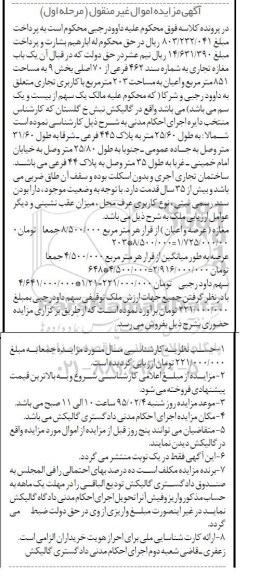 آگهی مزایده اموال غیر منقول (مرحله اول)
در پرونده کلاسه فوق محکوم علیه داوود رجبی محکوم است به پرداخت
مبلغ ۸۰۳/۲۳۲/۰۴۱ ریال در حق محکوم له ابراهیم بشارت و پرداخت
مبلغ ۱۴/۶۳۱/۳۹۰ ریال نیم عشر در حق دولت که در قبال آن یک باب
مغازه تجاری به شماره سند ۴۶۲ فرعی از ۷۰ اصلی بخش ۹ به مساحت
۸۵۱ متر مربع و اعیان به مساحت ۲۰۳ متر مربع با کاربری تجاری متعلق
به داوود رجبی و شرکا (که محکوم علیه مالک یک سهم از بیست و یک
سهم می باشد) می باشد واقع در گالیکش نبش خ گلستان که کارشناس
منتخب دایره اجرای احکام مدنی به شرح ذیل کارشناسی نموده است
شمالا: به طول ۲۵/۶۰ متر به پلاک ۴۴۵ فرعی -شرقا به طول ۳۱/۶۰
متر وصل به جاده عمومی -جنوبا به طول ۲۵/۸۰ متر وصل به خیابان
امام خمینی - غربا به طول ۳۵ متر وصل به پلاک ۴۴ فرعی می باشد
ساختمان تجاری آجری و بدون اسکلت بوده و سقف آن طاق ضربی می
باشد و بیش از ۳۵ سال قدمت دارد. با توجه به وضعیت موجود، دارا بودن
سند رسمی ثبتی، نوع کاربری عرف محل، میزان عقب نشینی و دیگر
عوامل ارزیابی ملک به شرح ذیل می باشد.
مغازه (عرصه و اعیان) از قرار هر متر مربع ۸/۵۰۰/۰۰۰ جمعا تومان ۰
۲۰۳*۸/۵۰۰/۰۰۰=۱/۷۲۵/۰۰۰/۰۰۰
عرصه به طور میانگین از قرار هر متر مربع ۴/۵۰۰/۰۰۰ جمعا
تومان ۶۴۸*۴/۵۰۰/۰۰۰=۲/۹۱۶/۰۰۰/۰۰۰
سهم داود رجبی تومان ۴/۶۴۱/۰۰۰/۰۰۰*۱/۲۱=۲۲۱/۰۰۰/۰۰۰
با در نظر گرفتن جمیع جهات ارزش ملک توقیفی سهم داود رجبی بمبلغ
۲۲۱/۰۰۰/۰۰۰ تومان برآورد نموده است که از طریق برگزاری مزایده
حضوری بشرح ذیل بفروش می رسد.
۱-حسب نظریه کارشناسی مال مورد مزایده جمعا به مبلغ
۲۲۱/۰۰۰/۰۰۰ تومان ارزیابی گردیده است.
۲-مزایده از مبلغ اعلامی کارشناسی شروع و به بالاترین قیمت
پیشنهادی فروخته می شود.
۳-موعد مزایده روز شنبه ۹۵/۰۲/۴ ساعت ۱۰ الی ۱۱ صبح می باشد.
۴-مکان مزایده اجرای احکام مدنی دادگستری گالیکش می باشد.
۵-متقاضیان می توانند پنج روز قبل از مزایده از اموال مورد مزایده واقع
در گالیکش دیدن نمایند.
۶-این آگهی فقط در یک نوبت منتشر می گردد.
۷-برنده مزایده مکلف است ده درصد بهای احتمالی را فی المجلس به
صندوق دادگستری گالیکش تودیع الباقی را در مهلت یک ماهه به
حساب مذکور واریز وفیش آنرا تحویل اجرای احکام مدنی دادگاه گالیکش
نماید در غیر اینصورت مبلغ واریزی از وی در حق دولت ضبط می
گردد.
۸-ارائه کارت شناسایی ملی برای احراز هویت خریداران الزامی است.
زعفری_قاضی شعبه دوم اجرای احکام مدنی دادگستری گالیکش